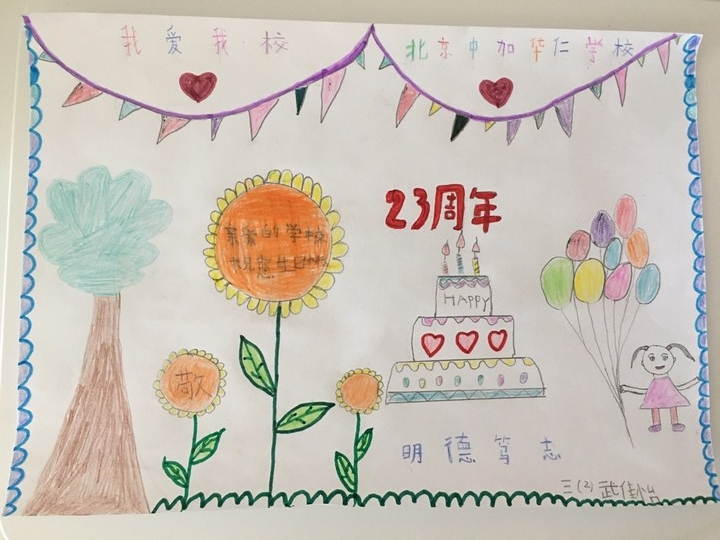 我爱我校
北京中加华仁学校
23周年
亲爱的学校
祝您生日快乐
HAPPY
敬
明德笃志
三(2) 武佳怡